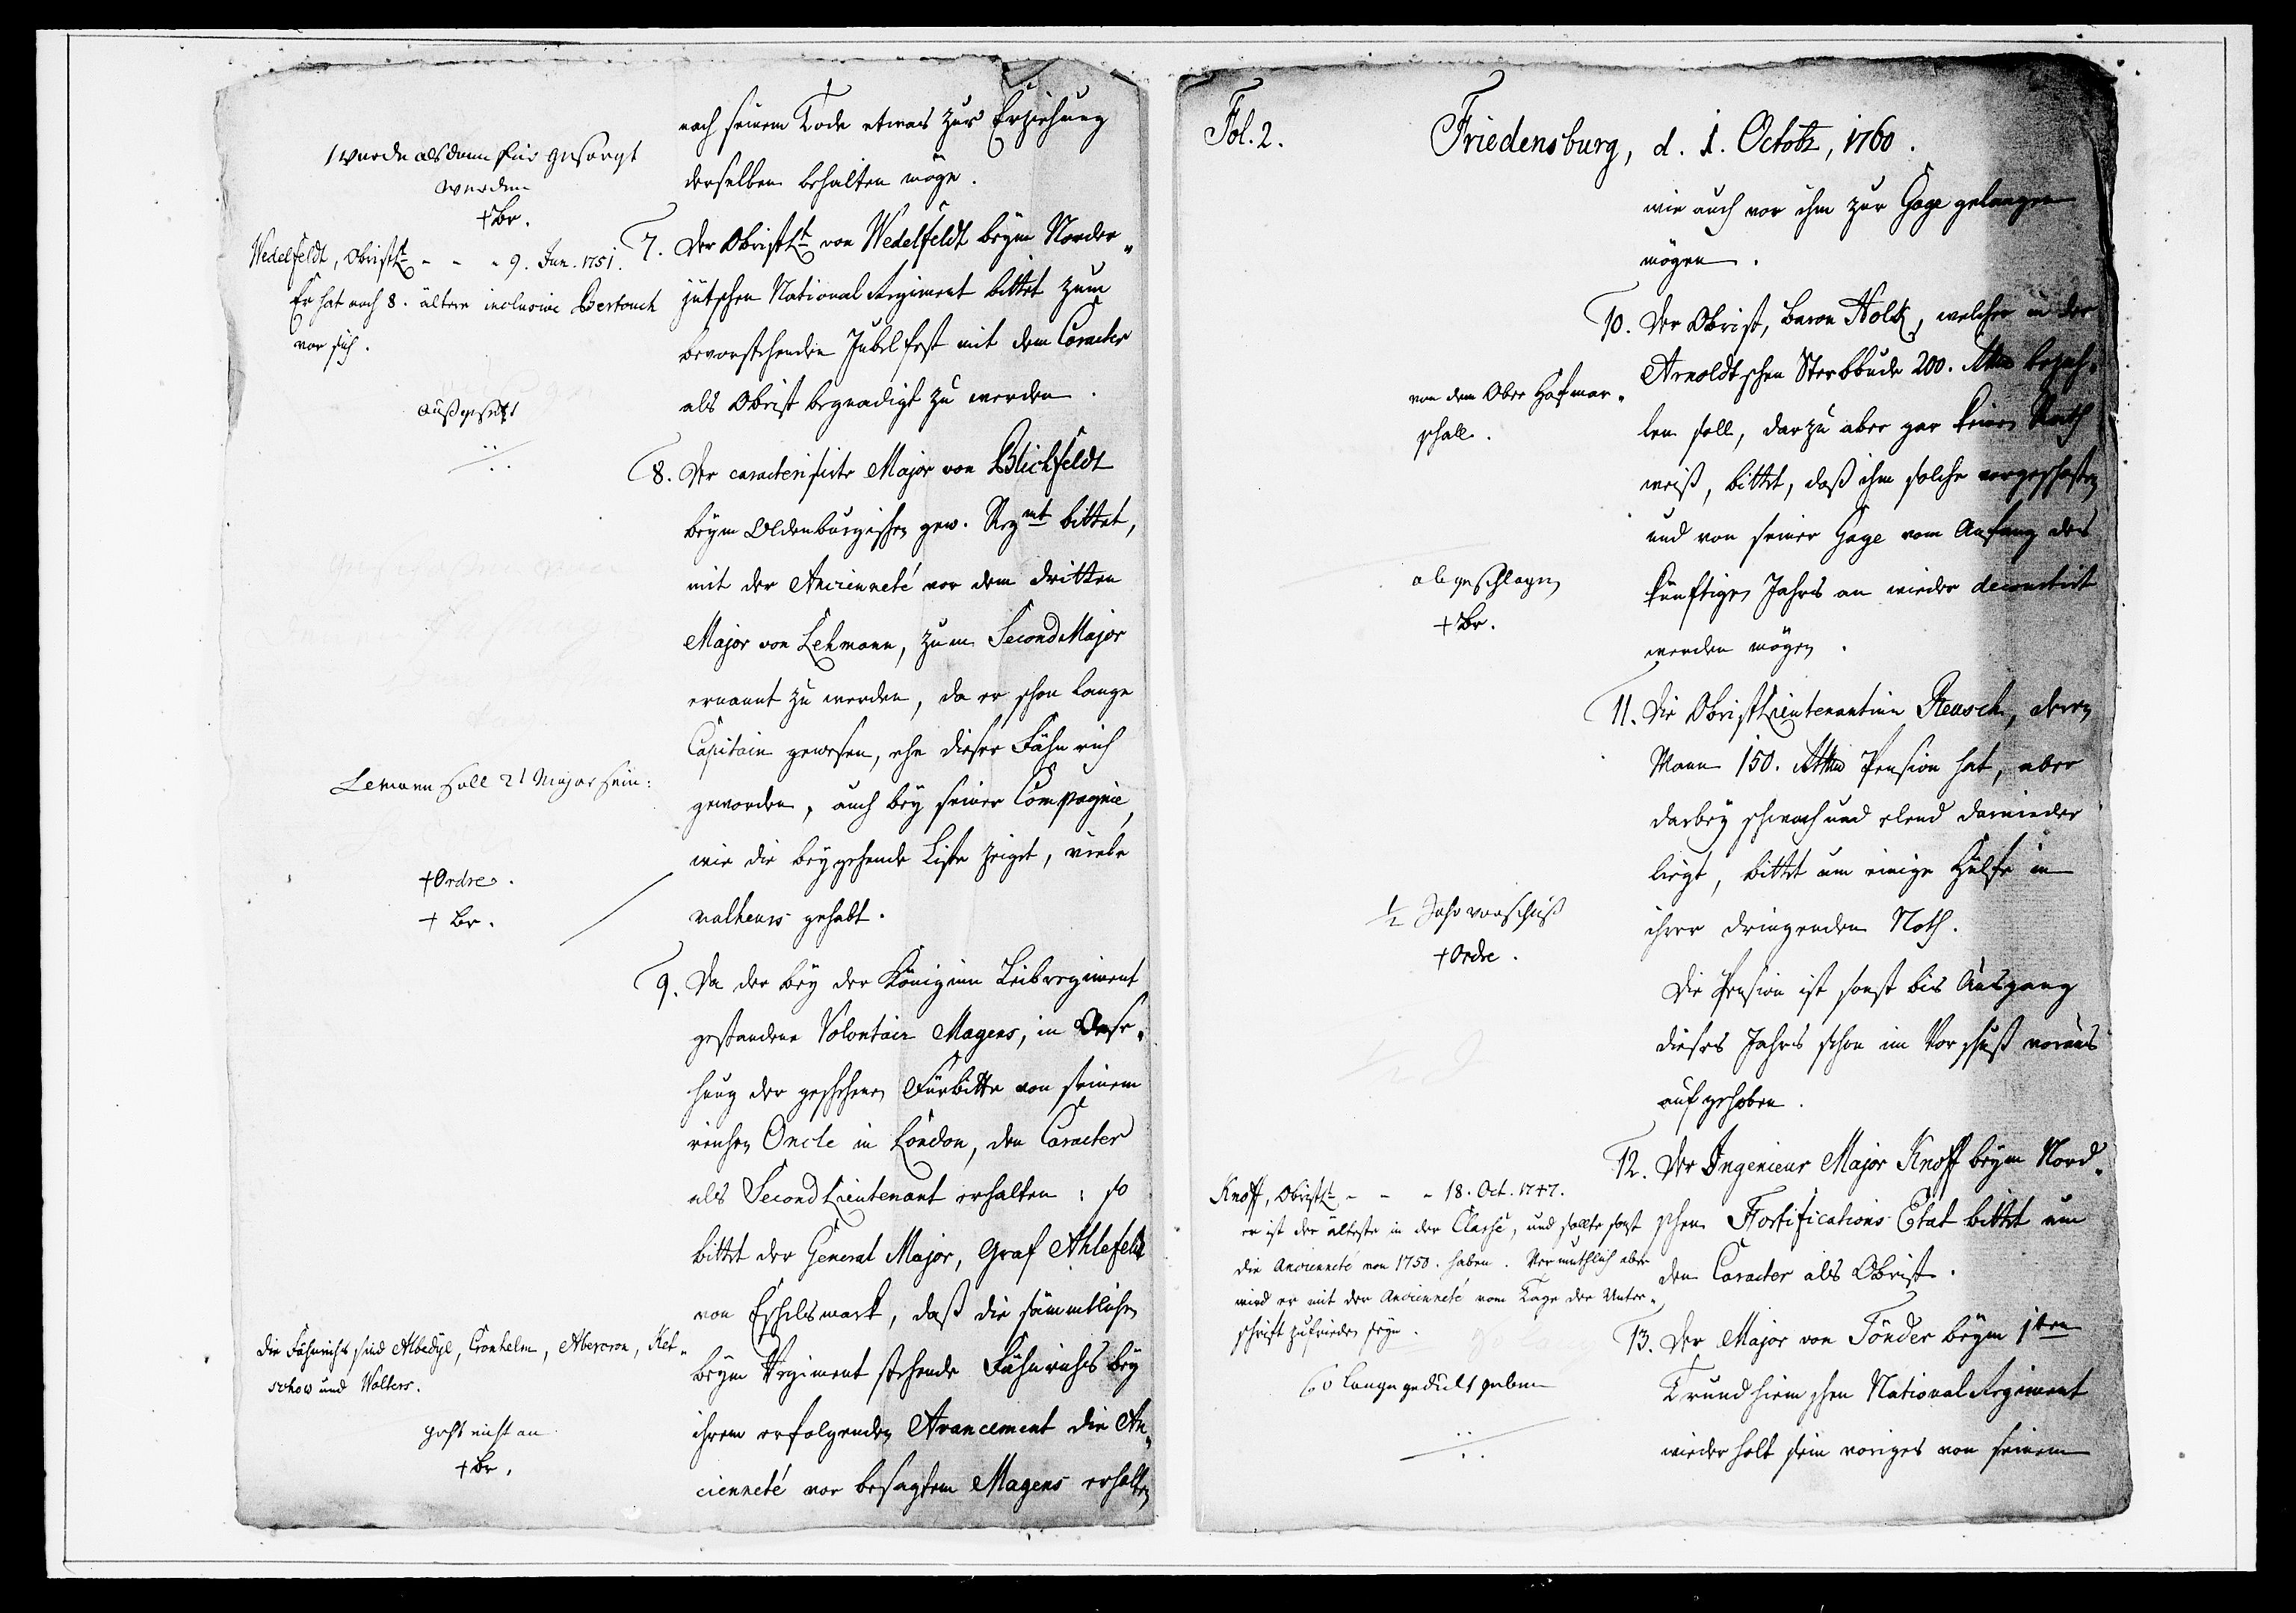 nach seinem Tode etwas zur Erziehung
derselben behalten möge.
wurde als dann für gesorgt
werden
+ Br.
Wedelfeldt, Obristlt - - - 9. Jun. 1751.
Er hat noch 8. ältere inclusive Bertouch
vor sich.
außgesetzt
7. Der Obristlt von Wedelfeldt beym Norder„
jütschen National Regiment bittet zum
bevorstehenden Jubelfest mit dem Caracter
als Obrist begnadigt zu werden.
8. Der caracterisirte Major von Blichfeldt
beym Oldenburgischen gew. Regmt bittet,
mit der Ancienneté vor dem dritten
Major von Lehmann, zum Second Major
ernannt zu werden, da er schon lange
Capitain gewesen, ehe dieser Fähnrich
geworden, auch bey seiner Compagnie,
wie die beygehende Liste zeiget, viele
malheurs gehabt.
Lemann soll 2t Major sein:
+ Ordre.
+ Br.
9. Da der bey der Königinn Leibregiment
gestandene Volontair Magens, in Anse„
hung der geschehenen Fürbitte von seinem
reichen Oncle in London, den Caracter
als Second Lieutenant erhalten: so
bittet der General Major, Graf Ahlefeldt
von Eschelsmark, daß die sämmtlichen
beym Regiment stehende Fähnrichs bey
ihrem erfolgenden Avancement die An„
cienneté vor besagtem Magens erhalten
die Fähnrichs sind Albedyl, Cronhelm, Abercron, Ret„
schow und Wolters.
geht nicht an
+ Br.
Fol. 2.
Friedensburg, d. 1. Octobr, 1760.
wie auch vor ihm zur Gage gelangen
mögen.
10. Der Obrist, Baron Holck, welcher in der
Arnoldtschen Sterbbude 200. Rthlr bezah„
len soll, darzu aber gar keinen Rath
weiß, bittet, daß ihm solche vorgeschossen
und von seiner Gage vom Anfang des
künftigen Jahrs an wieder decourtirt
werden mögen.
von dem Ober Hofmar„
schall.
abgeschlagen
+ Br.
11. Die Obristlieutenantinn Reusch, deren
Mann 150. Rthlr Pension hat, aber
darbey schwach und elend darnieder
liegt, bittet um einige Hülfe in
ihrer dringenden Noth.
Die Pension ist sonst bis Ausgang
dieses Jahrs schon im Vorschuß voraus
aufgehoben.
½ Jahr vorschuß
+ Ordre.
12. Der Ingenieur Major Knoff beym Nord„
schen Fortifications Etat bittet um
den Caracter als Obrist.
Knoff, Obristlt - - - 18. Oct. 1747.
er ist der älteste in der Classe, und sollte sonst
die Ancienneté von 1750. haben. Vermuthlich aber
wird er mit der Ancienneté vom Tage der Unter„
schrift zufrieden seyn.
so lange gedult geben
13. Der Major von Tönder beym 1ten
Trundhiemschen National Regiment
wiederholt sein voriges von seinem